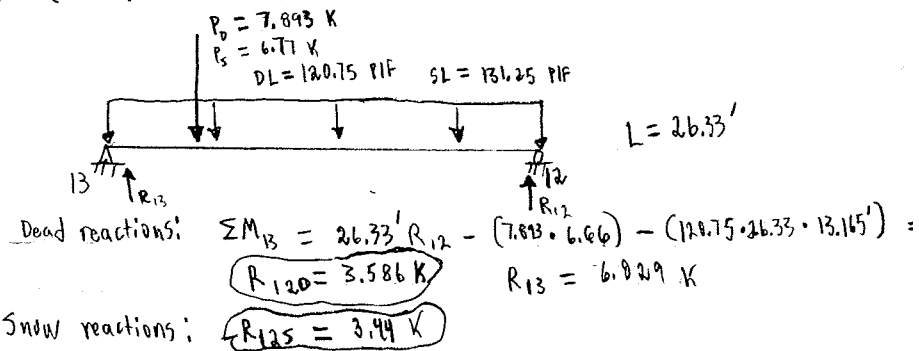 P_D = 7.893 K
P_S = 6.77 K
DL = 120.75 PlF SL = 131.25 PlF
L = 26.33'
13 R_13 12 R_12
Dead reactions: ΣM_13 = 26.33' R_12 - (7.893 · 6.66) - (120.75 · 26.33 · 13.165') =
R_12D = 3.586 K R_13 = 6.829 K
Snow reactions: R_12S = 3.44 K